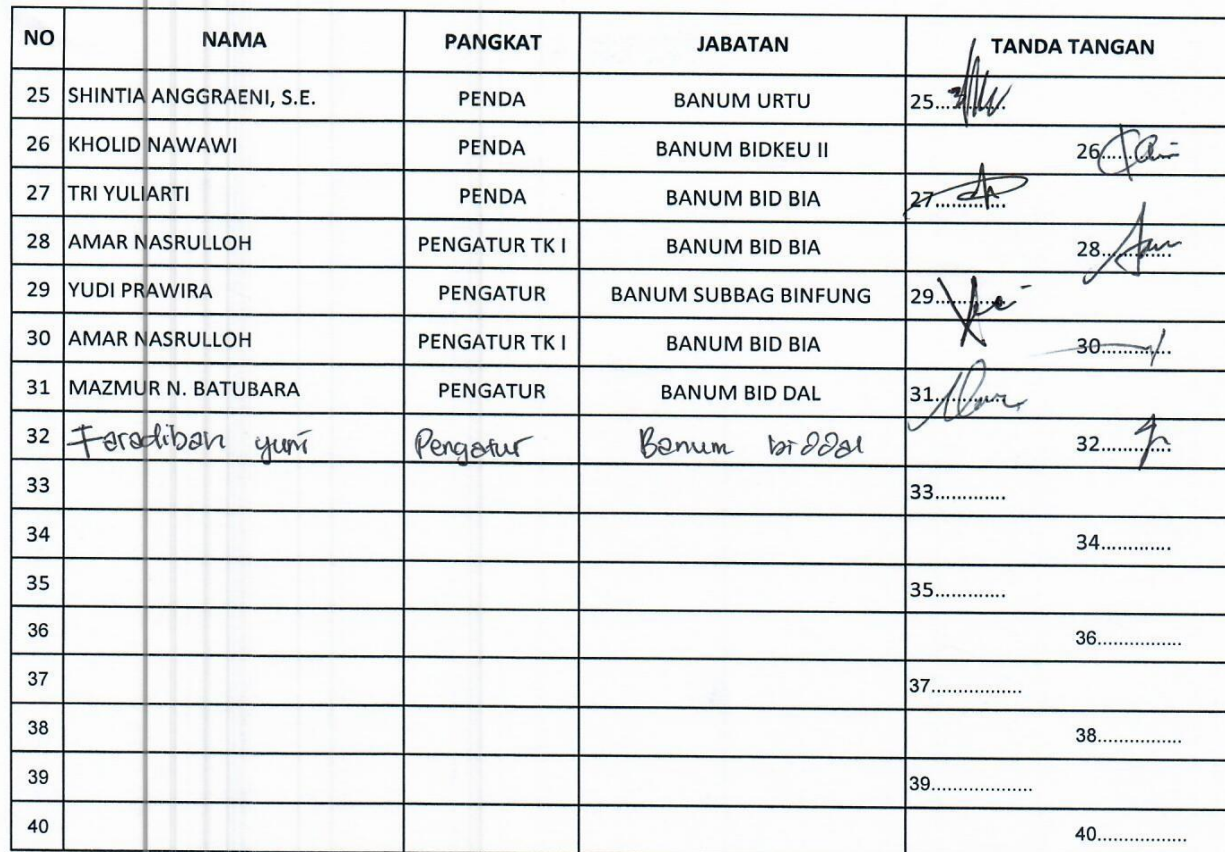 NO NAMA PANGKAT JABATAN TANDA TANGAN
25 SHINTIA ANGGRAENI, S.E. PENDA BANUM URTU 25.............
26 KHOLID NAWAWI PENDA BANUM BIDKEU II 26.............
27 TRI YULIARTI PENDA BANUM BID BIA 27.............
28 AMAR NASRULLOH PENGATUR TK I BANUM BID BIA 28.............
29 YUDI PRAWIRA PENGATUR BANUM SUBBAG BINFUNG 29.............
30 AMAR NASRULLOH PENGATUR TK I BANUM BID BIA 30.............
31 MAZMUR N. BATUBARA PENGATUR BANUM BID DAL 31.............
32 Faradiban yuni Pengatur Banum biddal 32.............
33 33.............
34 34.............
35 35.............
36 36................
37 37.................
38 38................
39 39...................
40 40.................